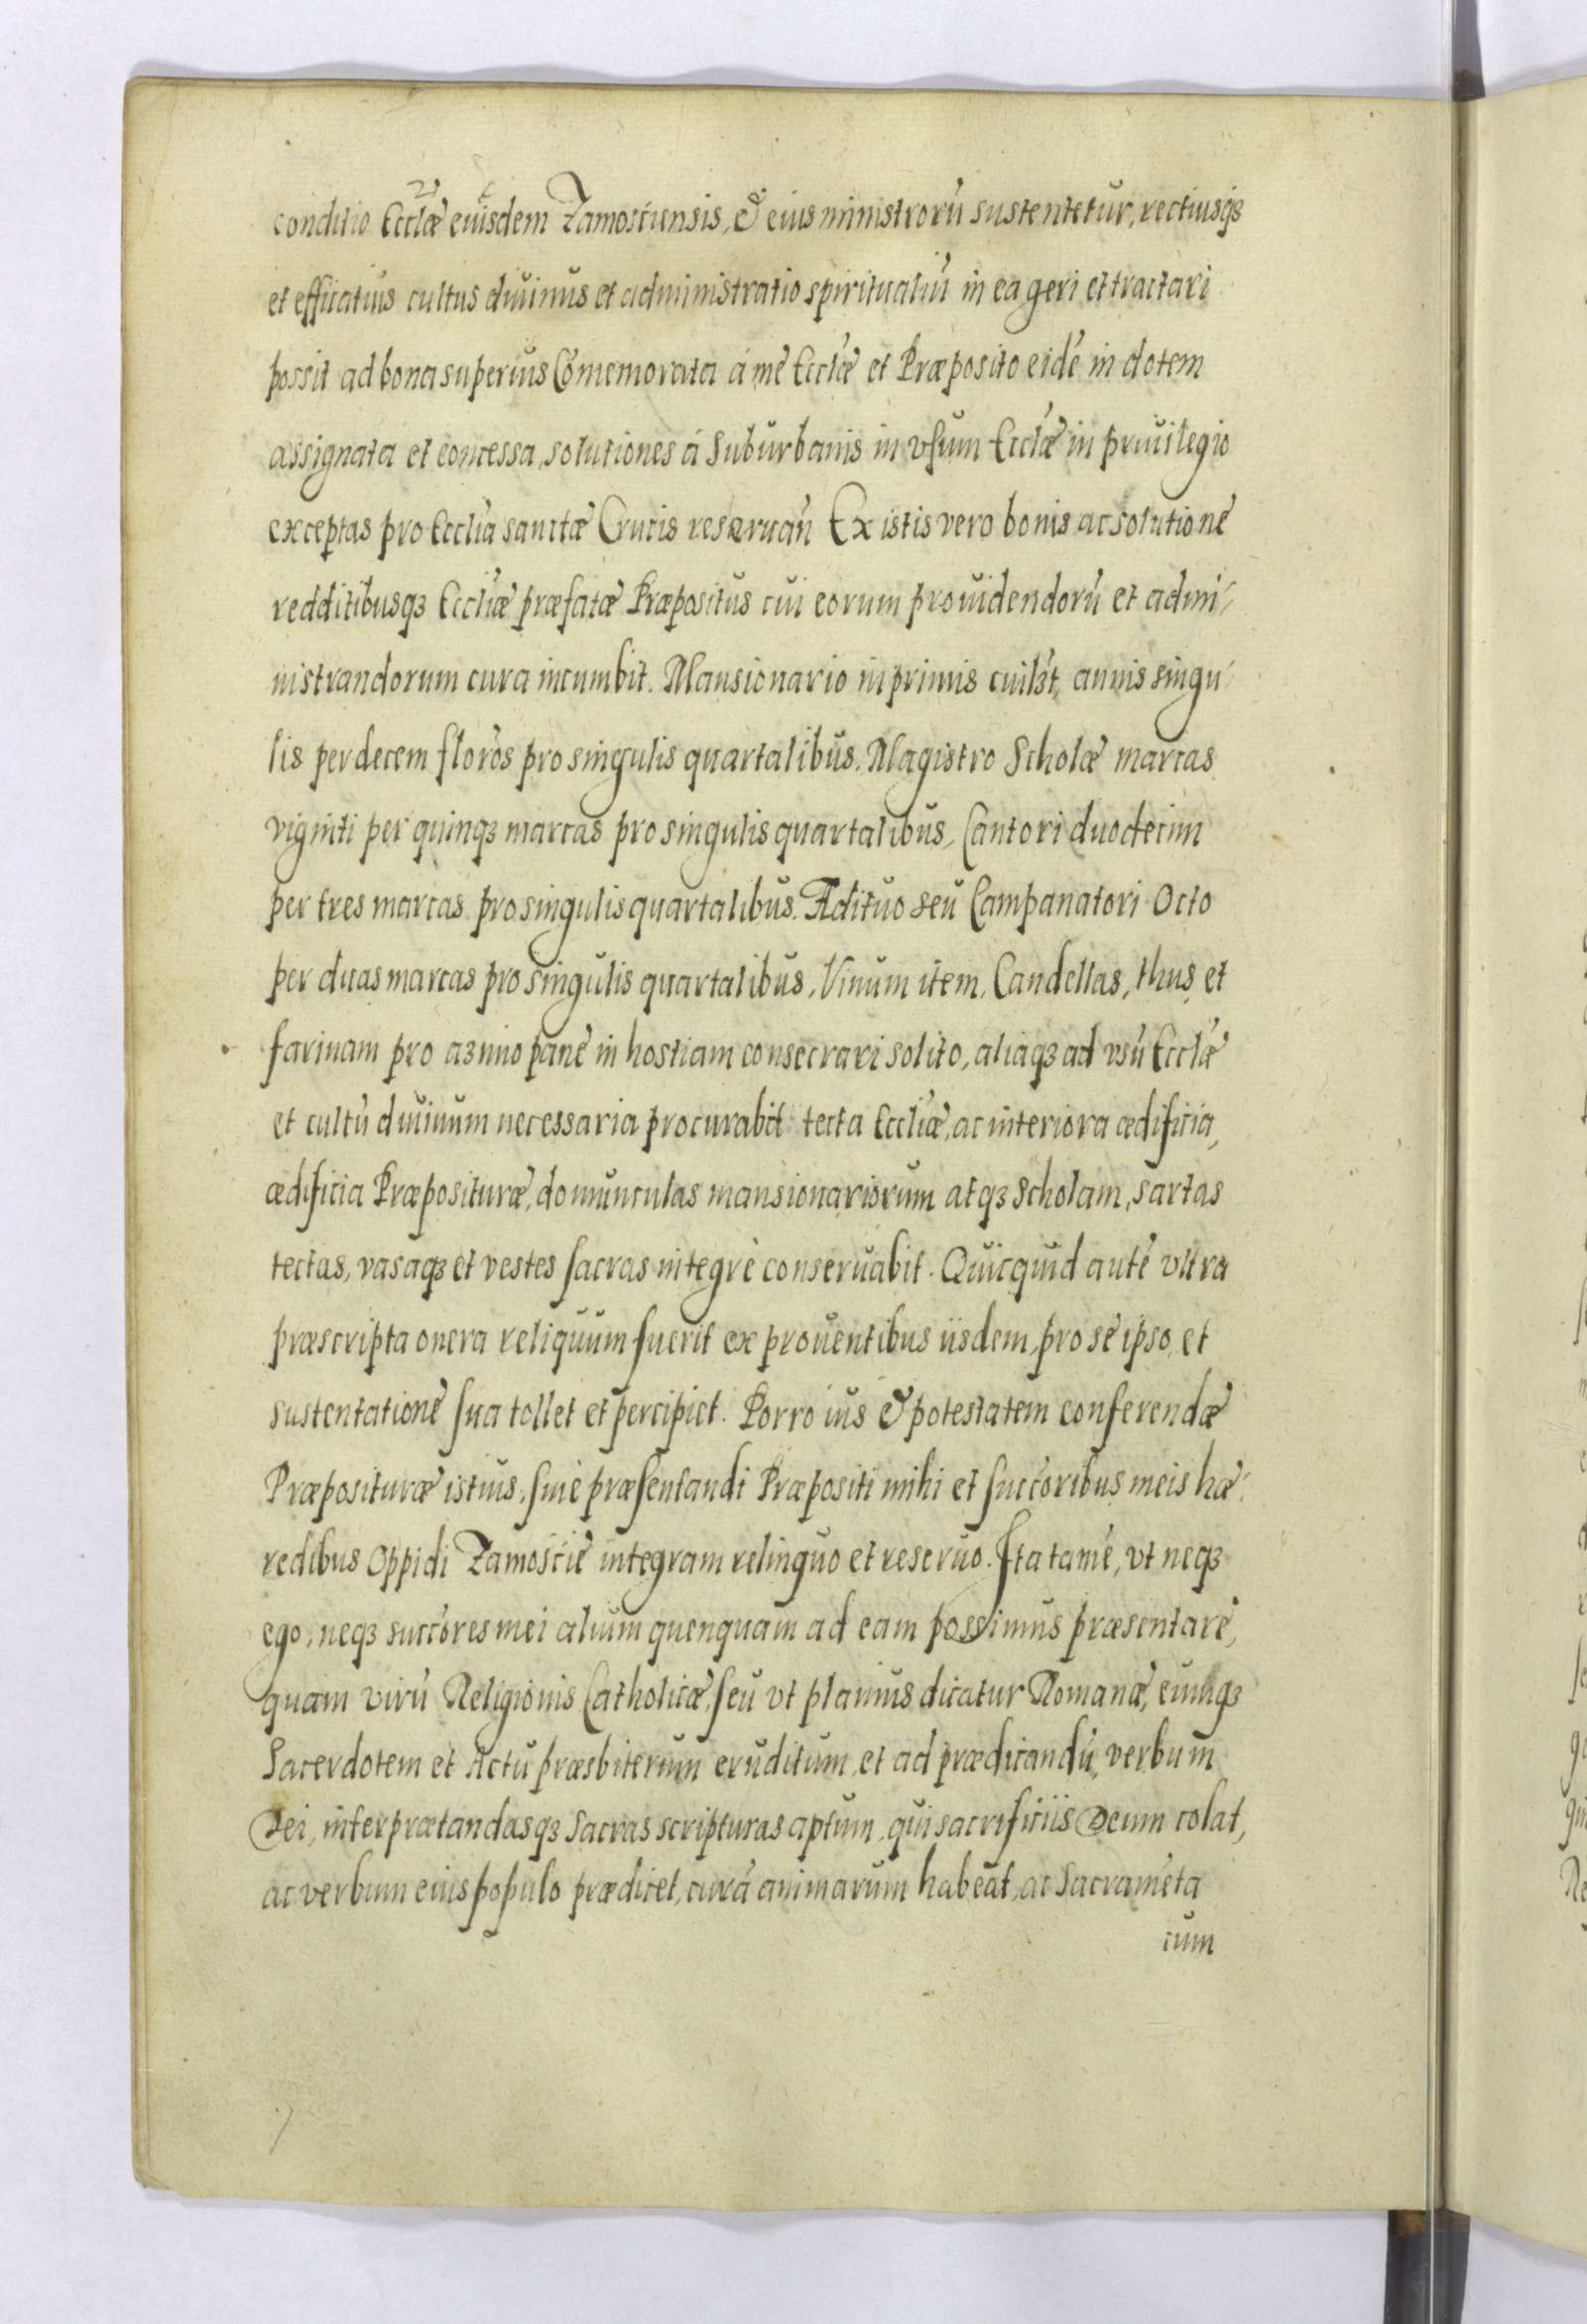 conditio Ecclæ eiusdem Zamosciensis, & eius ministrorũ sustentetur, rectiusqȝ
et efficatius cultus diuinus et administratio spiritualiũ in ea geri et tractari
possit ad bona superius Cõmemorata á me Ecclæ et Præposito eidẽ in dotem
assignata et concessa, solutiones á Suburbanis in vsum Ecclæ in priuilegio
exceptas pro Ecclia sanctæ Crucis reseruañ Ex istis vero bonis ac solutionẽ
redditibusqȝ Eccliæ præfatæ Præpositus cui eorum prouidendorũ et admi-
nistrandorum cura incumbit. Mansionario inprimis cuilȝt, annis singu-
lis per decem florõs pro singulis quartalibus. Magistro Scholæ marcas
viginti per quinqȝ marcas pro singulis quartalibus, Cantori duodecim
per tres marcas pro singulis quartalibus. Ædituo seu Campanatori Octo
per duas marcas pro singulis quartalibus, Vinum item, Candellas, thus et
farinam pro azimo panẽ in hostiam consecrari solito, aliaqȝ ad vsũ Ecclæ
et cultũ diuinum necessaria procurabit tecta Eccliæ, ac interiora ædificia,
ædificia Præposituræ, domunculas mansionariorum atqȝ Scholam, sartas
tectas, vasaqȝ et vestes sacras integrè conseruabit. Quicquid autẽ vltra
præscripta onera reliquum fuerit ex prouentibus iisdem, pro sè ipso, et
sustentationẽ sua tollet et percipiet. Porro ius & potestatem conferendæ
Præposituræ istius, siue præsentandi Præpositi mihi et succõribus meis hæ-
redibus Oppidi Zamoscie integram relinquo et reseruo. Ita tamẽ, vt neqȝ
ego, neqȝ succõres mei alium quenquam ad eam possimus præsentarè,
quam virũ Religionis Catholicæ, seu vt planius dicatur Romanæ, eumqȝ
Sacerdotem et Actu præsbiterum eruditum, et ad prædicandũ verbum
Dei, interprætandasqȝ Sacras scripturas aptum, qui sacrificiis Deum colat,
ac verbum eius populo prædicet, curã animarum habeat, ac Sacramẽta
cum